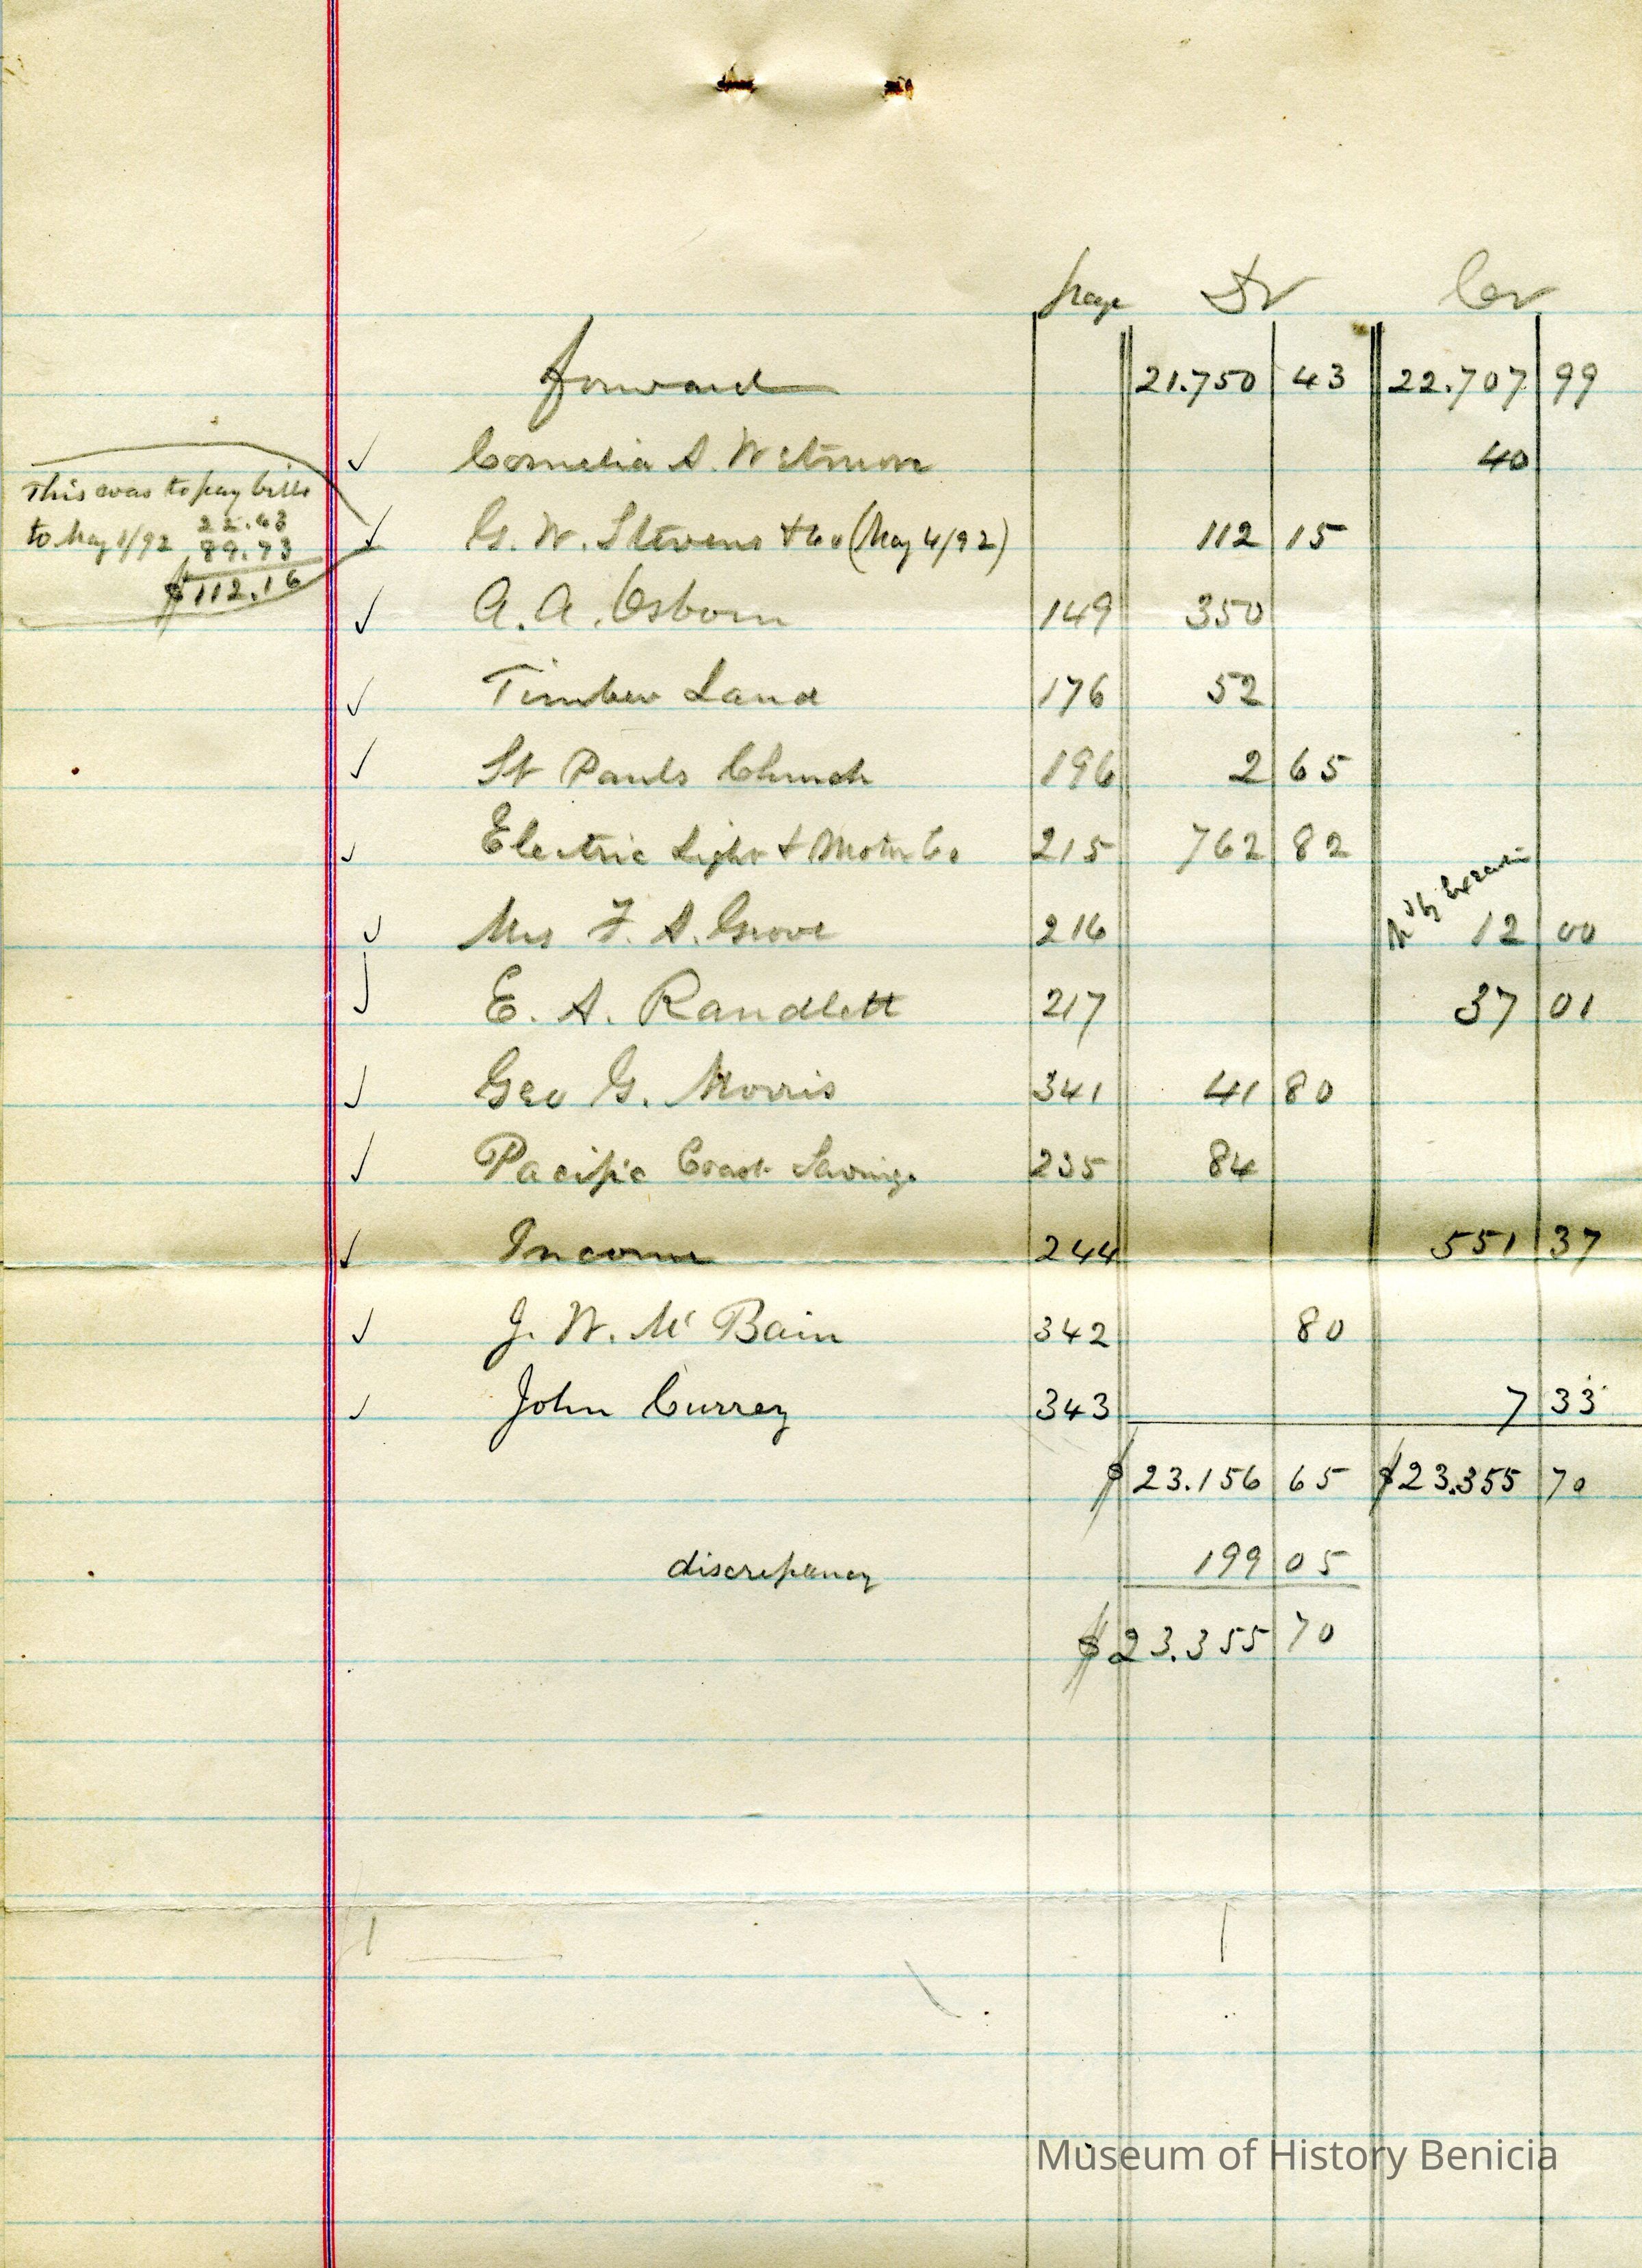 page Dr Cr
forward 21.750 43 22.707 99
Cornelia S. Wetmore 40
This was to pay bills
to May 1/92 22.43
89.73
$112.16
G. W. Stevens & Co (May 4/92) 112 15
A. A. Osborn 149 350
Timber Land 176 52
St Pauls Church 196 2 65
Electric Light & Motor Co 215 762 82
Mrs F. A. Grove 216 12 00
E. A. Randlett 217 37 01
Geo G. Morris 341 41 80
Pacific Coast Savings 235 84
Income 244 551 37
J. W. Mc Bain 342 80
John Currey 343 7 33
$23.156 65 $23.355 70
discrepancy 199 05
$23.355 70
Museum of History Benicia